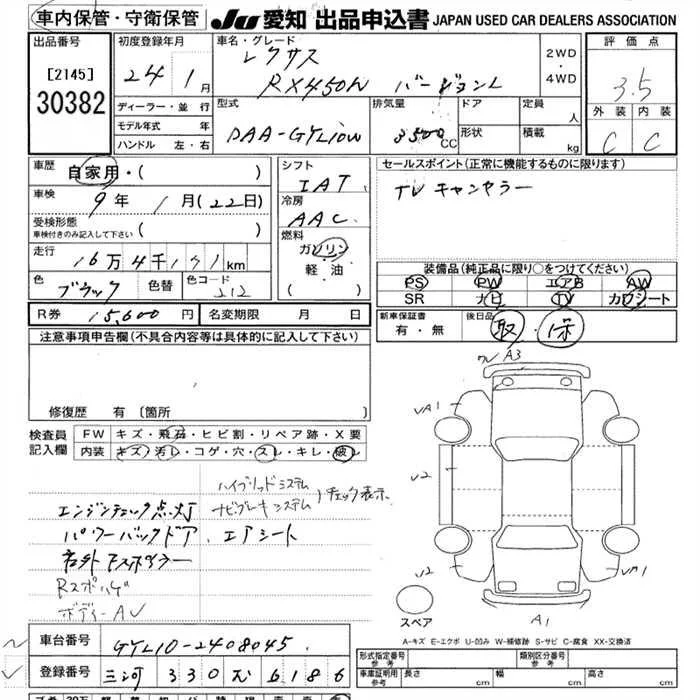 車内保管・守衛保管 JU 愛知 出品申込書 JAPAN USED CAR DEALERS ASSOCIATION
出品番号 初度登録年月 車名・グレード 2WD・4WD 評価点
[2145] 24年1月 レクサス 3.5
30382 RX450h バージョンL
ディーラー・並行 型式 排気量 ドア 定員 人 外装 内装
モデル年式 年 DAA-GYL10W 3500CC 形状 積載 kg C C
ハンドル 左・右
車歴 自家用・( ) シフト セールスポイント(正常に機能するものに限ります)
車検 9年1月(22日) IAT TVキャンセラー
受検形態 冷房
車検付きのみ記入して下さい ( ) AAC
走行 16万4千171km 燃料 ガソリン
軽・油
( )
装備品(純正品に限り○をつけてください)
色 ブラック 色替 色コード 212 PS PW エアB AW
SR ナビ TV カワシート
R券 15,600円 名変期限 月 日 新車保証書 有・無 後日品 取・保
注意事項申告欄(不具合内容等は具体的に記入して下さい)
修復歴 有 [箇所
検査員記入欄 FW キズ・飛石・ヒビ割・リペア跡・X要
内装 キズ・汚レ・コゲ・穴・スレ・キレ・破レ
ハイブリッドシステム
エンジンチェック点灯 ナビブレーキシステム )チェック表示
パワーバックドア、エアシート
社外マスポイラー
Rスポハゲ
ボディーAU
ワレ A3
VA1
V2
V2
A1
スペア
A-キズ E-エクボ U-凹み W-補修跡 S-サビ C-腐食 XX-交換済
車台番号 GYL10-2408045
登録番号 三河 330 6186
形式指定番号 参考 類別区分番号 参考
車庫証明用 参考 長さ cm 幅 cm 高さ cm